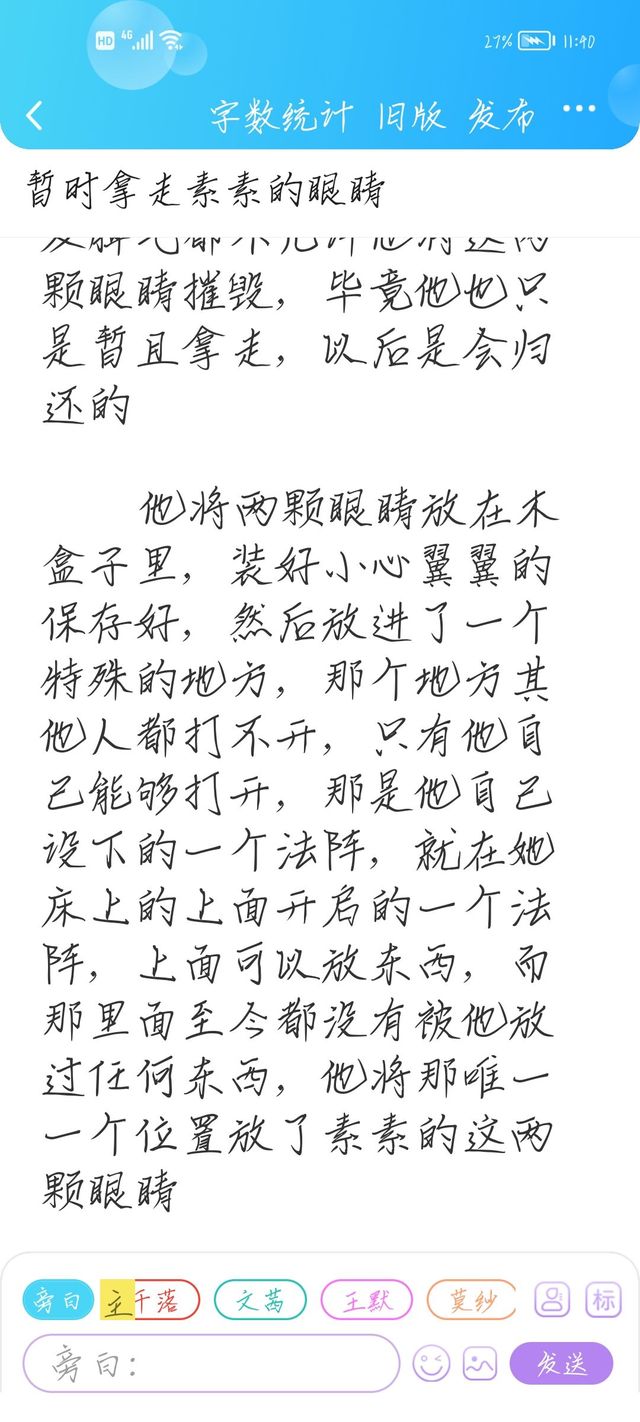 HD 4G 27% 11:40
字数统计 旧版 发布
暂时拿走素素的眼睛
颗眼睛摧毁，毕竟他也只
是暂且拿走，以后是会归
还的
他将两颗眼睛放在木
盒子里，装好小心翼翼的
保存好，然后放进了一个
特殊的地方，那个地方其
他人都打不开，只有他自
己能够打开，那是他自己
设下的一个法阵，就在她
床上的上面开启的一个法
阵，上面可以放东西，而
那里面至今都没有被他放
过任何东西，他将那唯一
一个位置放了素素的这两
颗眼睛
旁白 主 千落 文茜 王默 莫纱 标
旁白： 发送